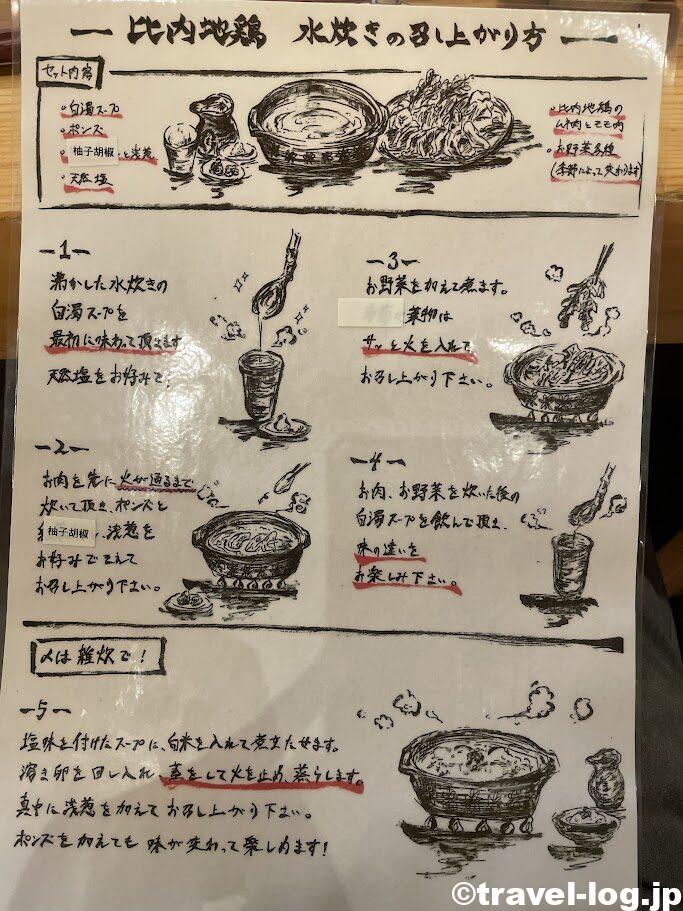 比内地鶏 水炊きの召し上がり方
セット内容
・白濁スープ
・ポンズ
・柚子胡椒と浅葱
・天然塩
・比内地鶏の
ムネ肉とモモ肉
・お野菜各種
(季節によって変わります)
-1-
沸かした水炊きの
白濁スープを
最初に味わって頂きます
天然塩をお好みで!
-2-
お肉を先に火が通るまで
炊いて頂き、ポンズと
柚子胡椒、浅葱を
お好みで
お召し上がり下さい。
-3-
お野菜を加えて煮ます。
葉物は
サッと火を入れて、
お召し上がり下さい。
-4-
お肉、お野菜を炊いた後の
白濁スープを飲んで頂き、
味の違いを
お楽しみ下さい。
〆は雑炊で!
-5-
塩味を付けたスープに、白米を入れて煮立たせます。
溶き卵を回し入れ、蓋をして火を止め、蒸らします。
真中に浅葱を加えてお召し上がり下さい。
ポンズを加えても味が変わって楽しめます!
©travel-log.jp